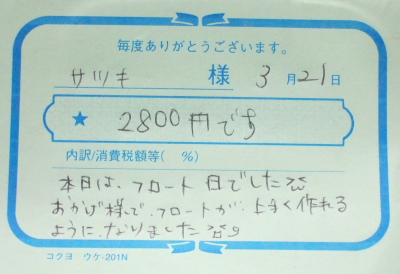 毎度ありがとうございます。
サツキ 様 3月21日
★ 2800円です
内訳/消費税額等( %)
本日は、フロート日でした
おかげ様で、フロートが、上手く作れる
ように、なりました
コクヨ ウケ-201N